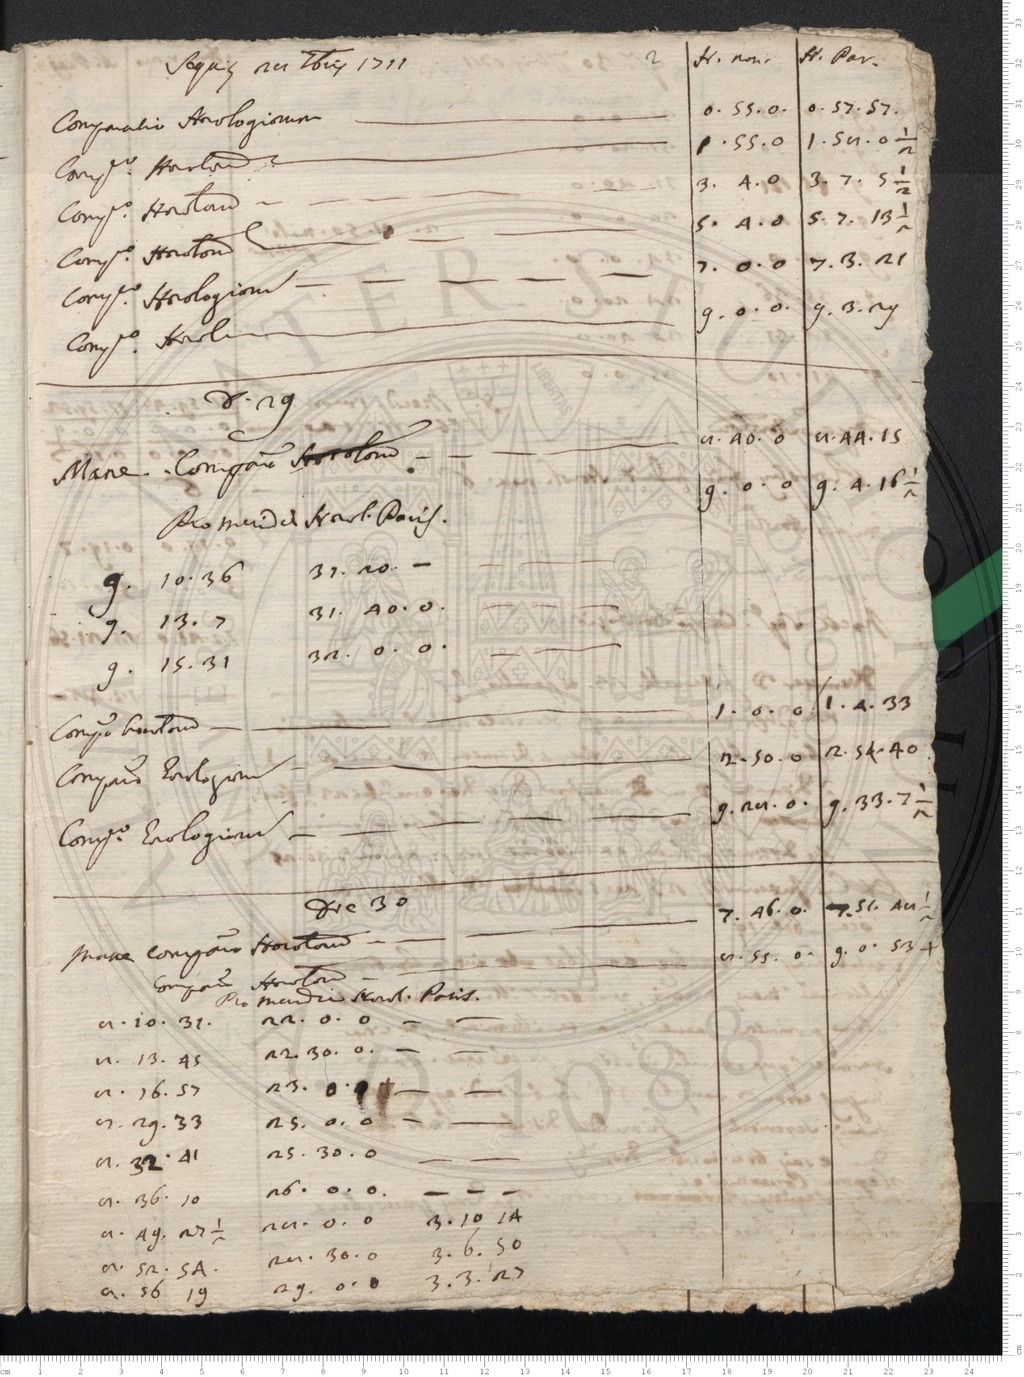 Sequit 28 7bris 1711 2 H. nov. H. Par.
Comparatio Horologiorum 0. 55. 0. 0. 57. 57.
Comp.o Horolorum 1. 55. 0 1. 58. 0 1/2
Comp.o Horolorum 3. 4. 0 3. 7. 5 1/2
Comp.o Horolorum 5. 4. 0 5. 7. 13 1/2
Comp.o Horologiorum 7. 0. 0 7. 3. 21
Comp.o Horol 9. 0. 0. 9. 3. 29
D. 29
Mane. Comparō Horolorum 8. 40. 0 8. 44. 15
9. 0. 0 9. 4. 16 1/2
Pro meridie Horol. Paris.
9. 10. 36 31. 20. —
9. 13. 7 31. 40. 0.
9. 15. 31 32. 0. 0.
Compō horolorum 1. 0. 0 1. 4. 33
Comparō Orologiorum 2. 50. 0 2. 54. 40
Comp.o Orologiorum 9. 28. 0. 9. 33. 7 1/2
Die 30
Mane comparō Horolorum 7. 46. 0. 7. 51. 48 1/2
Comparō Horolorum 8. 55. 0. 9. 0. 53
Pro meridie Horol. Paris.
8. 10. 31. 22. 0. 0
8. 13. 45 22. 30. 0.
8. 16. 57 23. 0.
8. 29. 33 25. 0. 0
8. 32. 41 25. 30. 0
8. 36. 10 26. 0. 0.
8. 49. 27 1/2 28. 0. 0 3. 10 14
8. 52. 54. 28. 30. 0 3. 6. 50
8. 56 19 29. 0. 0 3. 3. 27